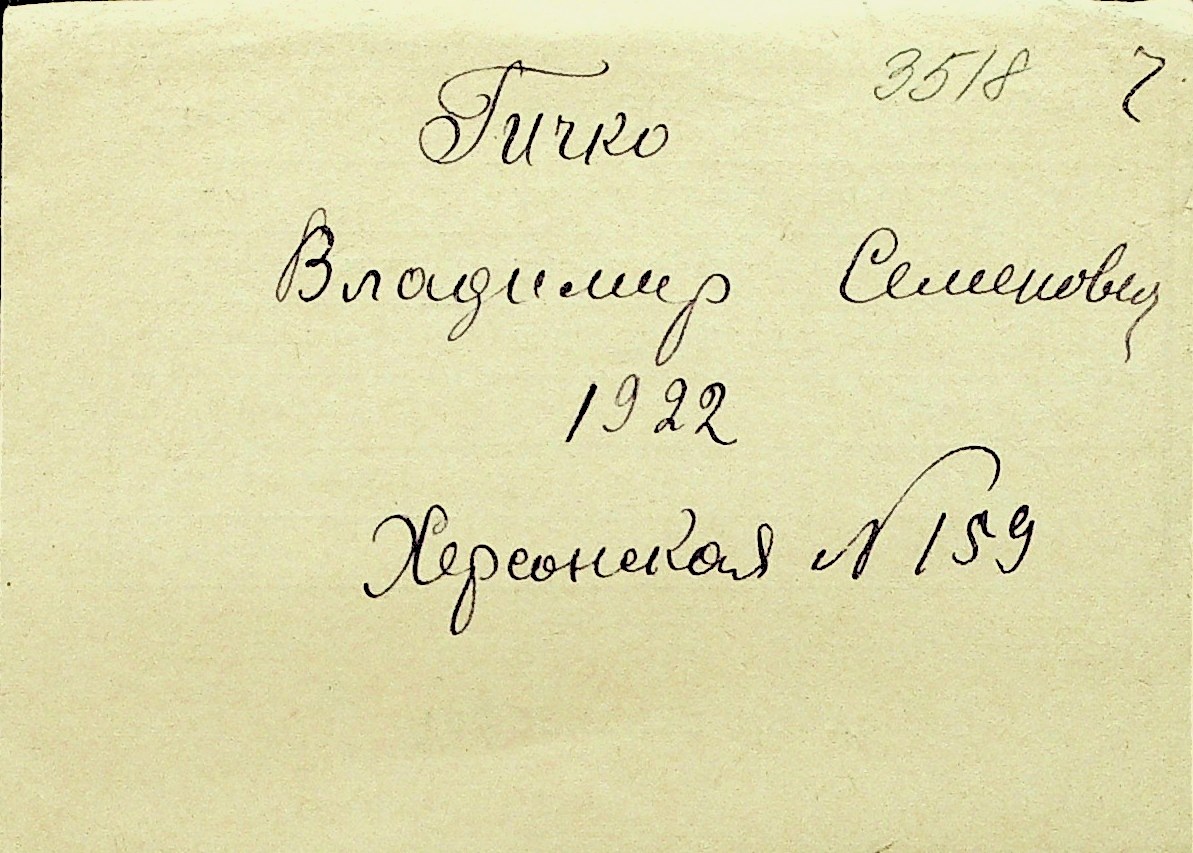 3518
Гичко
Владимир Семенович
1922
Херсонская № 159